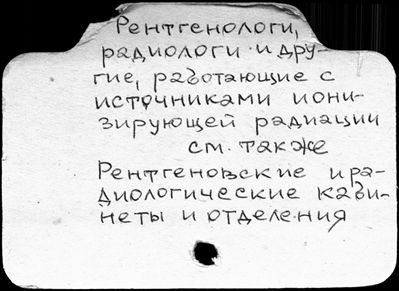 Рентгенологи,
радиологи и дру-
гие, работающие с
источниками иони-
зирующей радиации
см. также
Рентгеновские и ра-
диологические каби-
неты и отделения